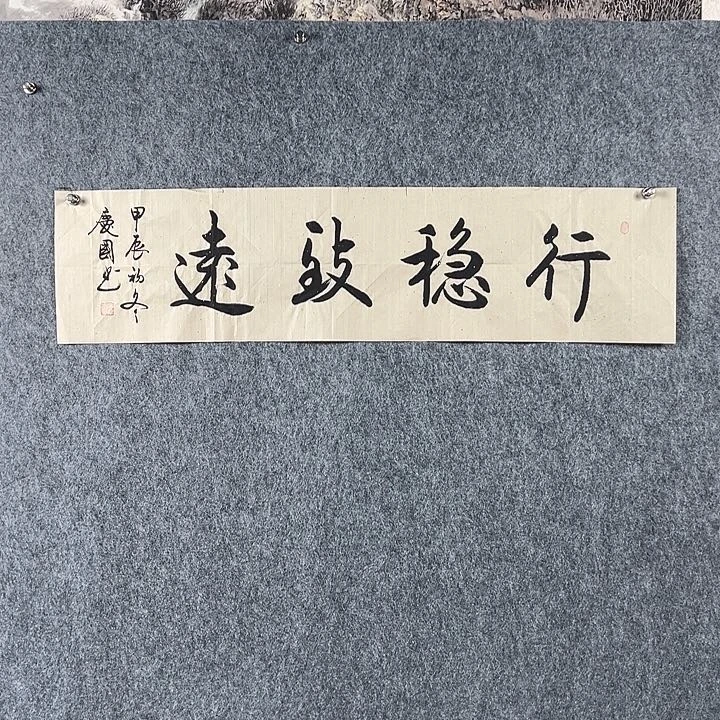 行稳致遠
甲辰初冬
慶國书